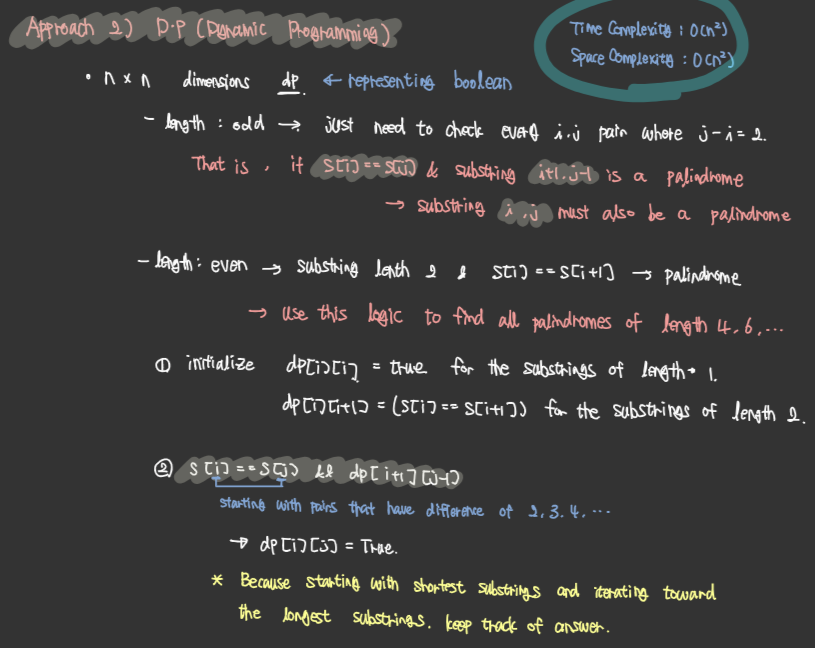 Approach 2) D.P (Dynamic Programming)
Time Complexity : O(n²)
Space Complexity : O(n²)
• n × n dimensions dp. ← representing boolean
- length : odd → just need to check every i, j pair where j - i = 2.
That is, if S[i] == S[j] & substring i+1, j-1 is a palindrome
→ substring i, j must also be a palindrome
- length : even → substring lenth 2 & S[i] == S[i+1] → palindrome
→ use this logic to find all palindromes of length 4, 6, ...
① initialize dp[i][i] = true for the substrings of length 1.
dp[i][i+1] = (S[i] == S[i+1]) for the substrings of length 2.
② S[i] == S[j] && dp[i+1][j-1]
starting with pairs that have difference of 2, 3, 4, ...
→ dp[i][j] = True.
* Because starting with shortest substrings and iterating toward
the longest substrings. keep track of answer.